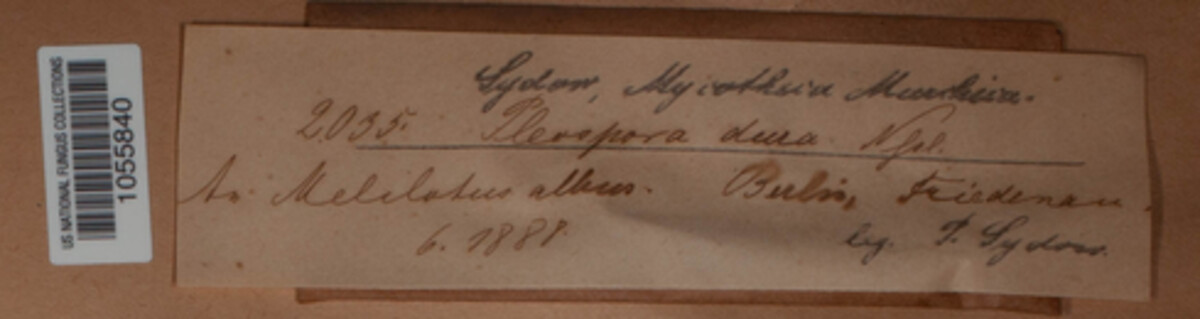 US NATIONAL FUNGUS COLLECTIONS
1055840
Sydow, Mycotheca Marchica.
2035. Pleospora dura Nssl.
An Melilotus albus. Berlin, Friedenau.
6. 1888
leg. P. Sydow.